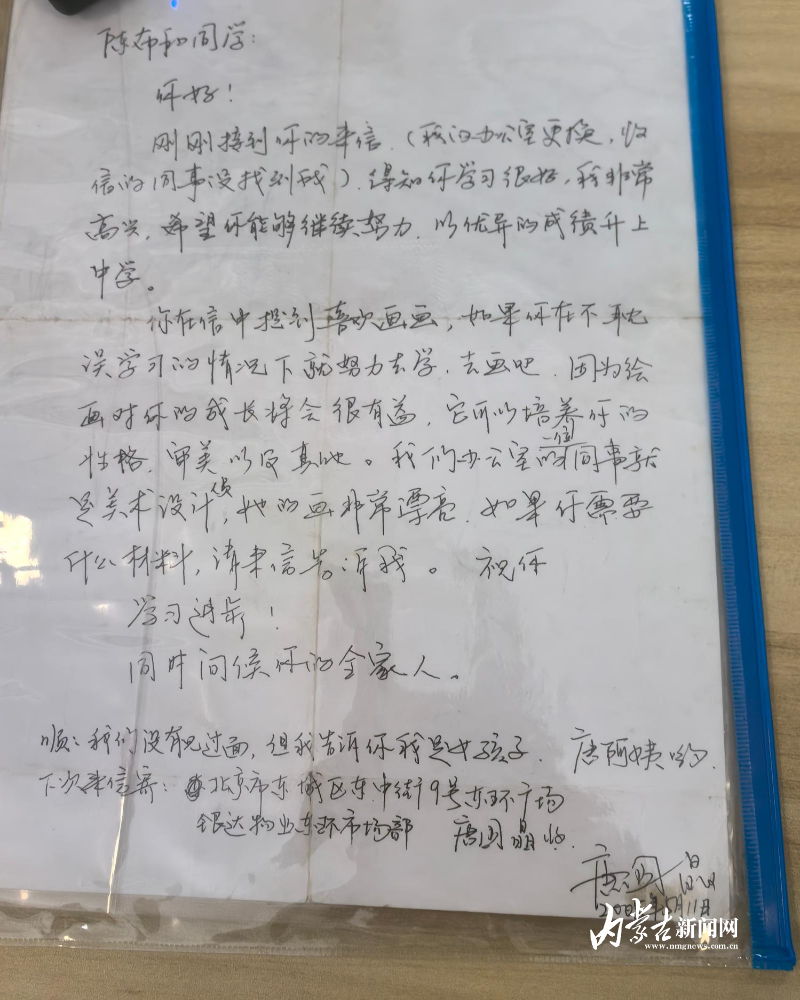 陈布和同学：
你好！
刚刚接到你的来信，（我们办公室更换，收
信的同事没找到我）。得知你学习很好，我非常
高兴，希望你能够继续努力，以优异的成绩升上
中学。
你在信中提到喜欢画画，如果你在不耽
误学习的情况下就努力去学，去画吧，因为绘
画对你的成长将会很有益，它可以培养你的
性格、审美以及其他。我们办公室的一位同事就
是美术设计员，她的画非常漂亮，如果你需要
什么材料，请来信告诉我。 祝你
学习进步！
同时问候你的全家人。
顺：我们没有见过面，但我告诉你我是女孩子，唐阿姨哟。
下次来信寄：北京市东城区东中街9号东环广场
银达物业东环市场部 唐国晶收.
唐国晶
月11日
内蒙古新闻网
www.nmgnews.com.cn